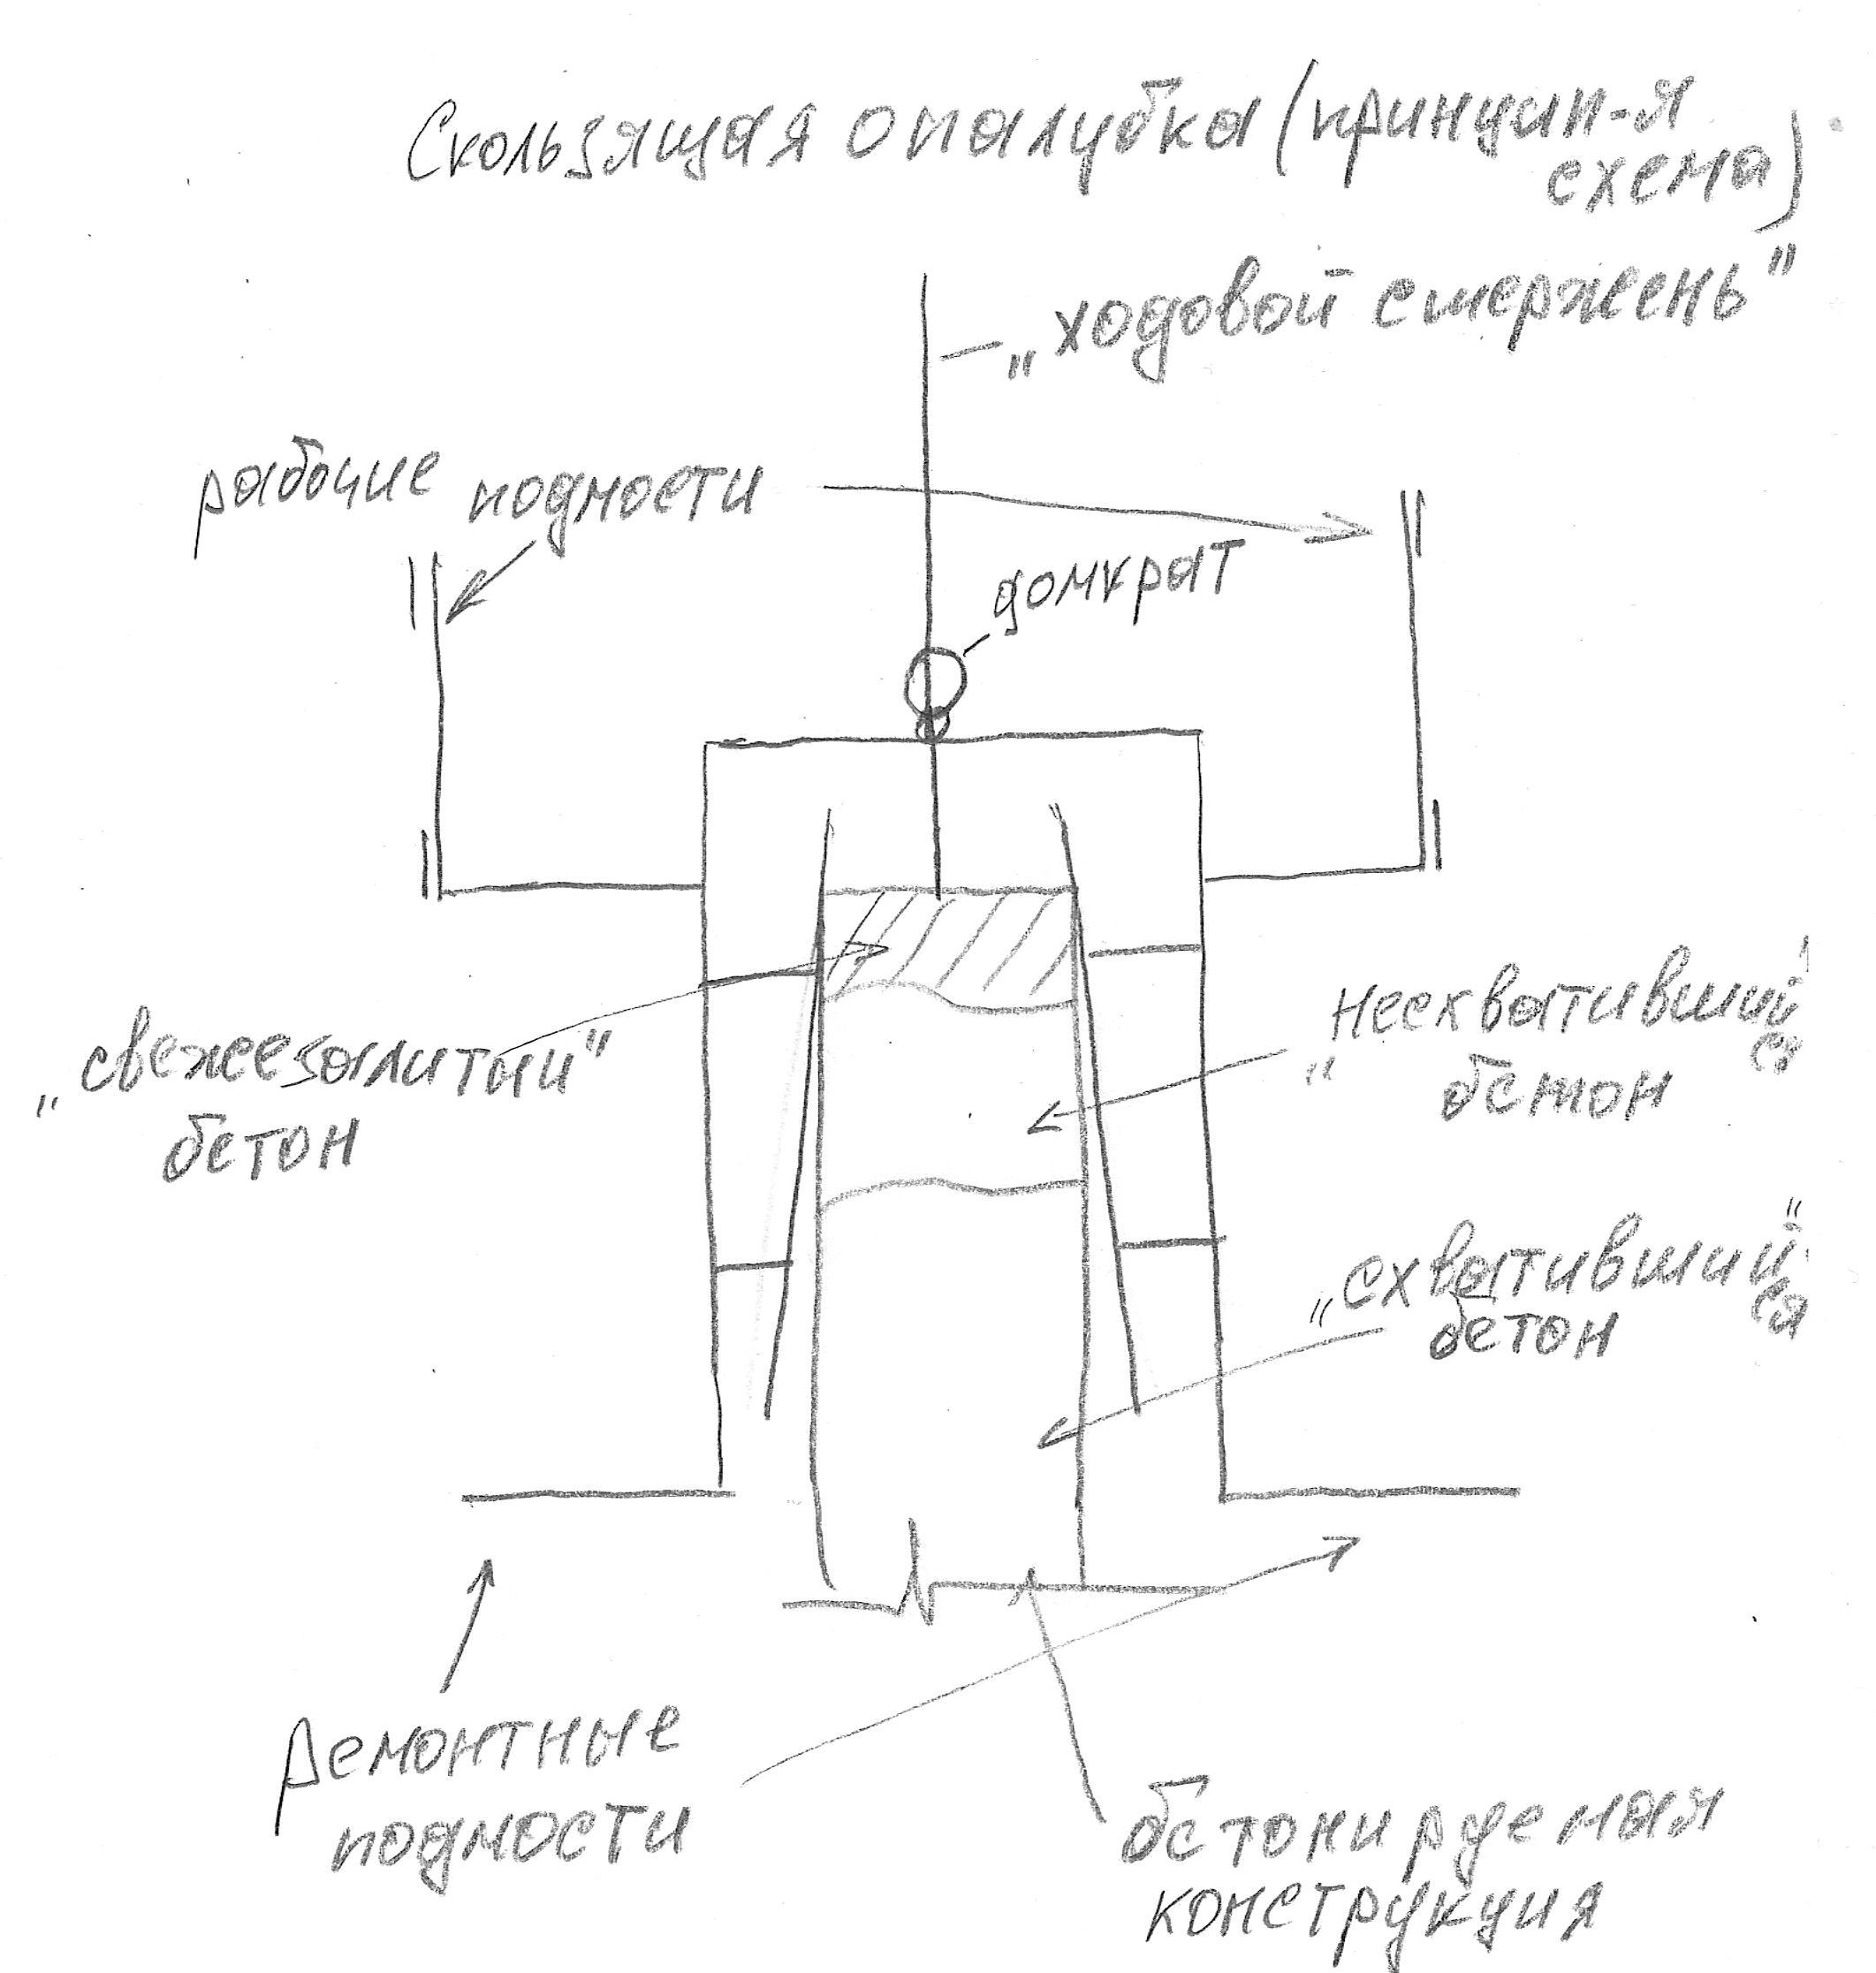 Скользящая опалубка (принцип-я
схема)
„ходовой стержень"
рабочие подмости
домкрат
„свежезалитый"
бетон
„несхвативший
ся
бетон
„схвативший"
ся
бетон
Ремонтные
подмости
бетонируемая
конструкция